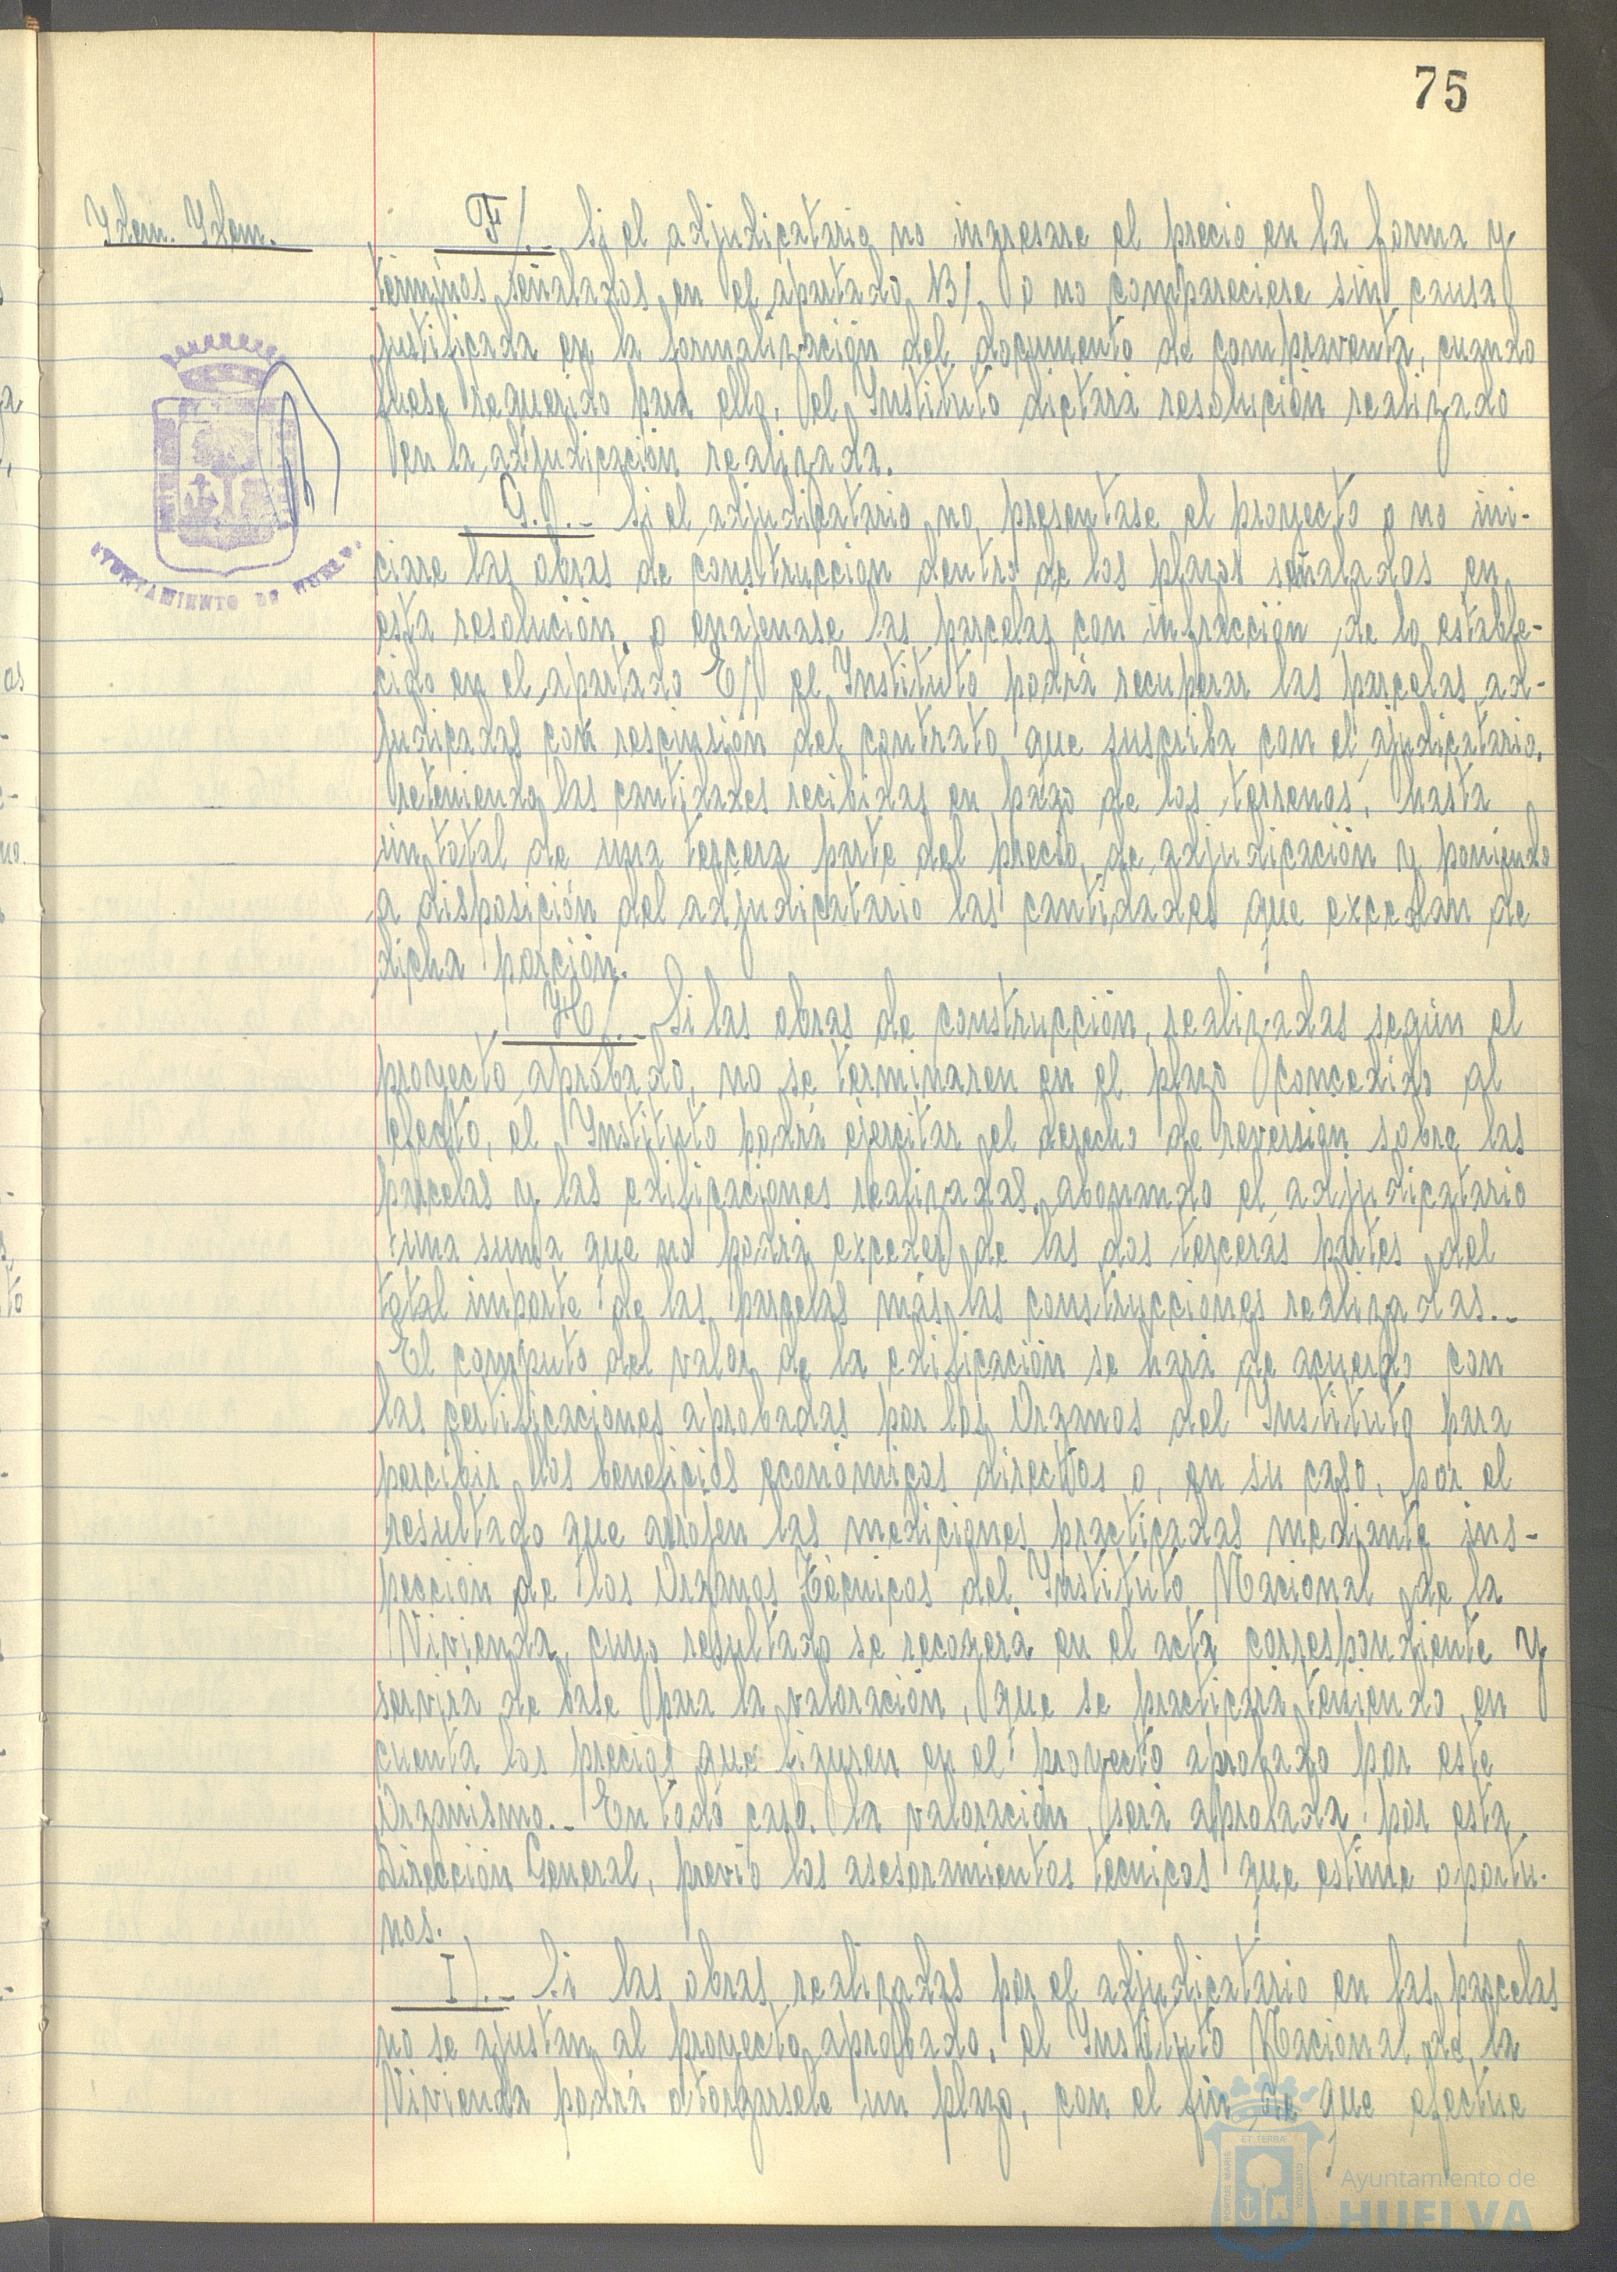 75
Idem. Idem.
F/.- Si el adjudicatario no ingresare el precio en la forma y
términos señalados en el apartado B/, o no compareciese sin causa
justificada en la formalización del documento de compraventa, cuando
fuese requerido para ello, el Instituto dictará resolución realizado
en la adjudicación realizada.
G.).- Si el adjudicatario no presentase el proyecto o no ini-
ciare las obras de construcción dentro de los plazos señalados en
esta resolución, o enajenase las parcelas con infracción de lo estable-
cido en el apartado E/ el Instituto podrá recuperar las parcelas ad-
judicadas con rescinsión del contrato que suscriba con el ajudicatario,
reteniendo las cantidades recibidas en pago de los terrenos, hasta
un total de una tercera parte del precio de adjudicación y poniendo
a disposición del adjudicatario las cantidades que excedan de
dicha porción.
H/.- Si las obras de construcción, realizadas según el
proyecto aprobado, no se terminaren en el plazo concedido al
efecto, el Instituto podrá ejercitar el derecho de reversión sobre las
parcelas y las edificaciones realizadas, abonando el adjudicatario
una suma que no podrá exceder de las dos terceras partes del
total importe de las parcelas más las construcciones realizadas.-
El computo del valor de la edificación se hará de acuerdo con
las certificaciones aprobadas por los Organos del Instituto para
percibir los beneficios económicos directos o, en su caso, por el
resultado que arrojen las mediciones practicadas mediante ins-
pección de los Organos Técnicos del Instituto Nacional de la
Vivienda, cuyo resultado se recogerá en el acta correspondiente y
servirá de base para la valoración, que se practicará teniendo en
cuenta los precios que figuren en el proyecto aprobado por este
Organismo.- En todo caso, la valoración será aprobada por esta
Dirección General, previo los asesoramientos tecnicos que estime oportu-
nos.
I).- Si las obras realizadas por el adjudicatario en las parcelas
no se ajustan al proyecto aprobado, el Instituto Nacional de la
Vivienda podrá otorgarsele un plazo, con el fin de que efectue
AYUNTAMIENTO DE HUELVA
Ayuntamiento de
HUELVA